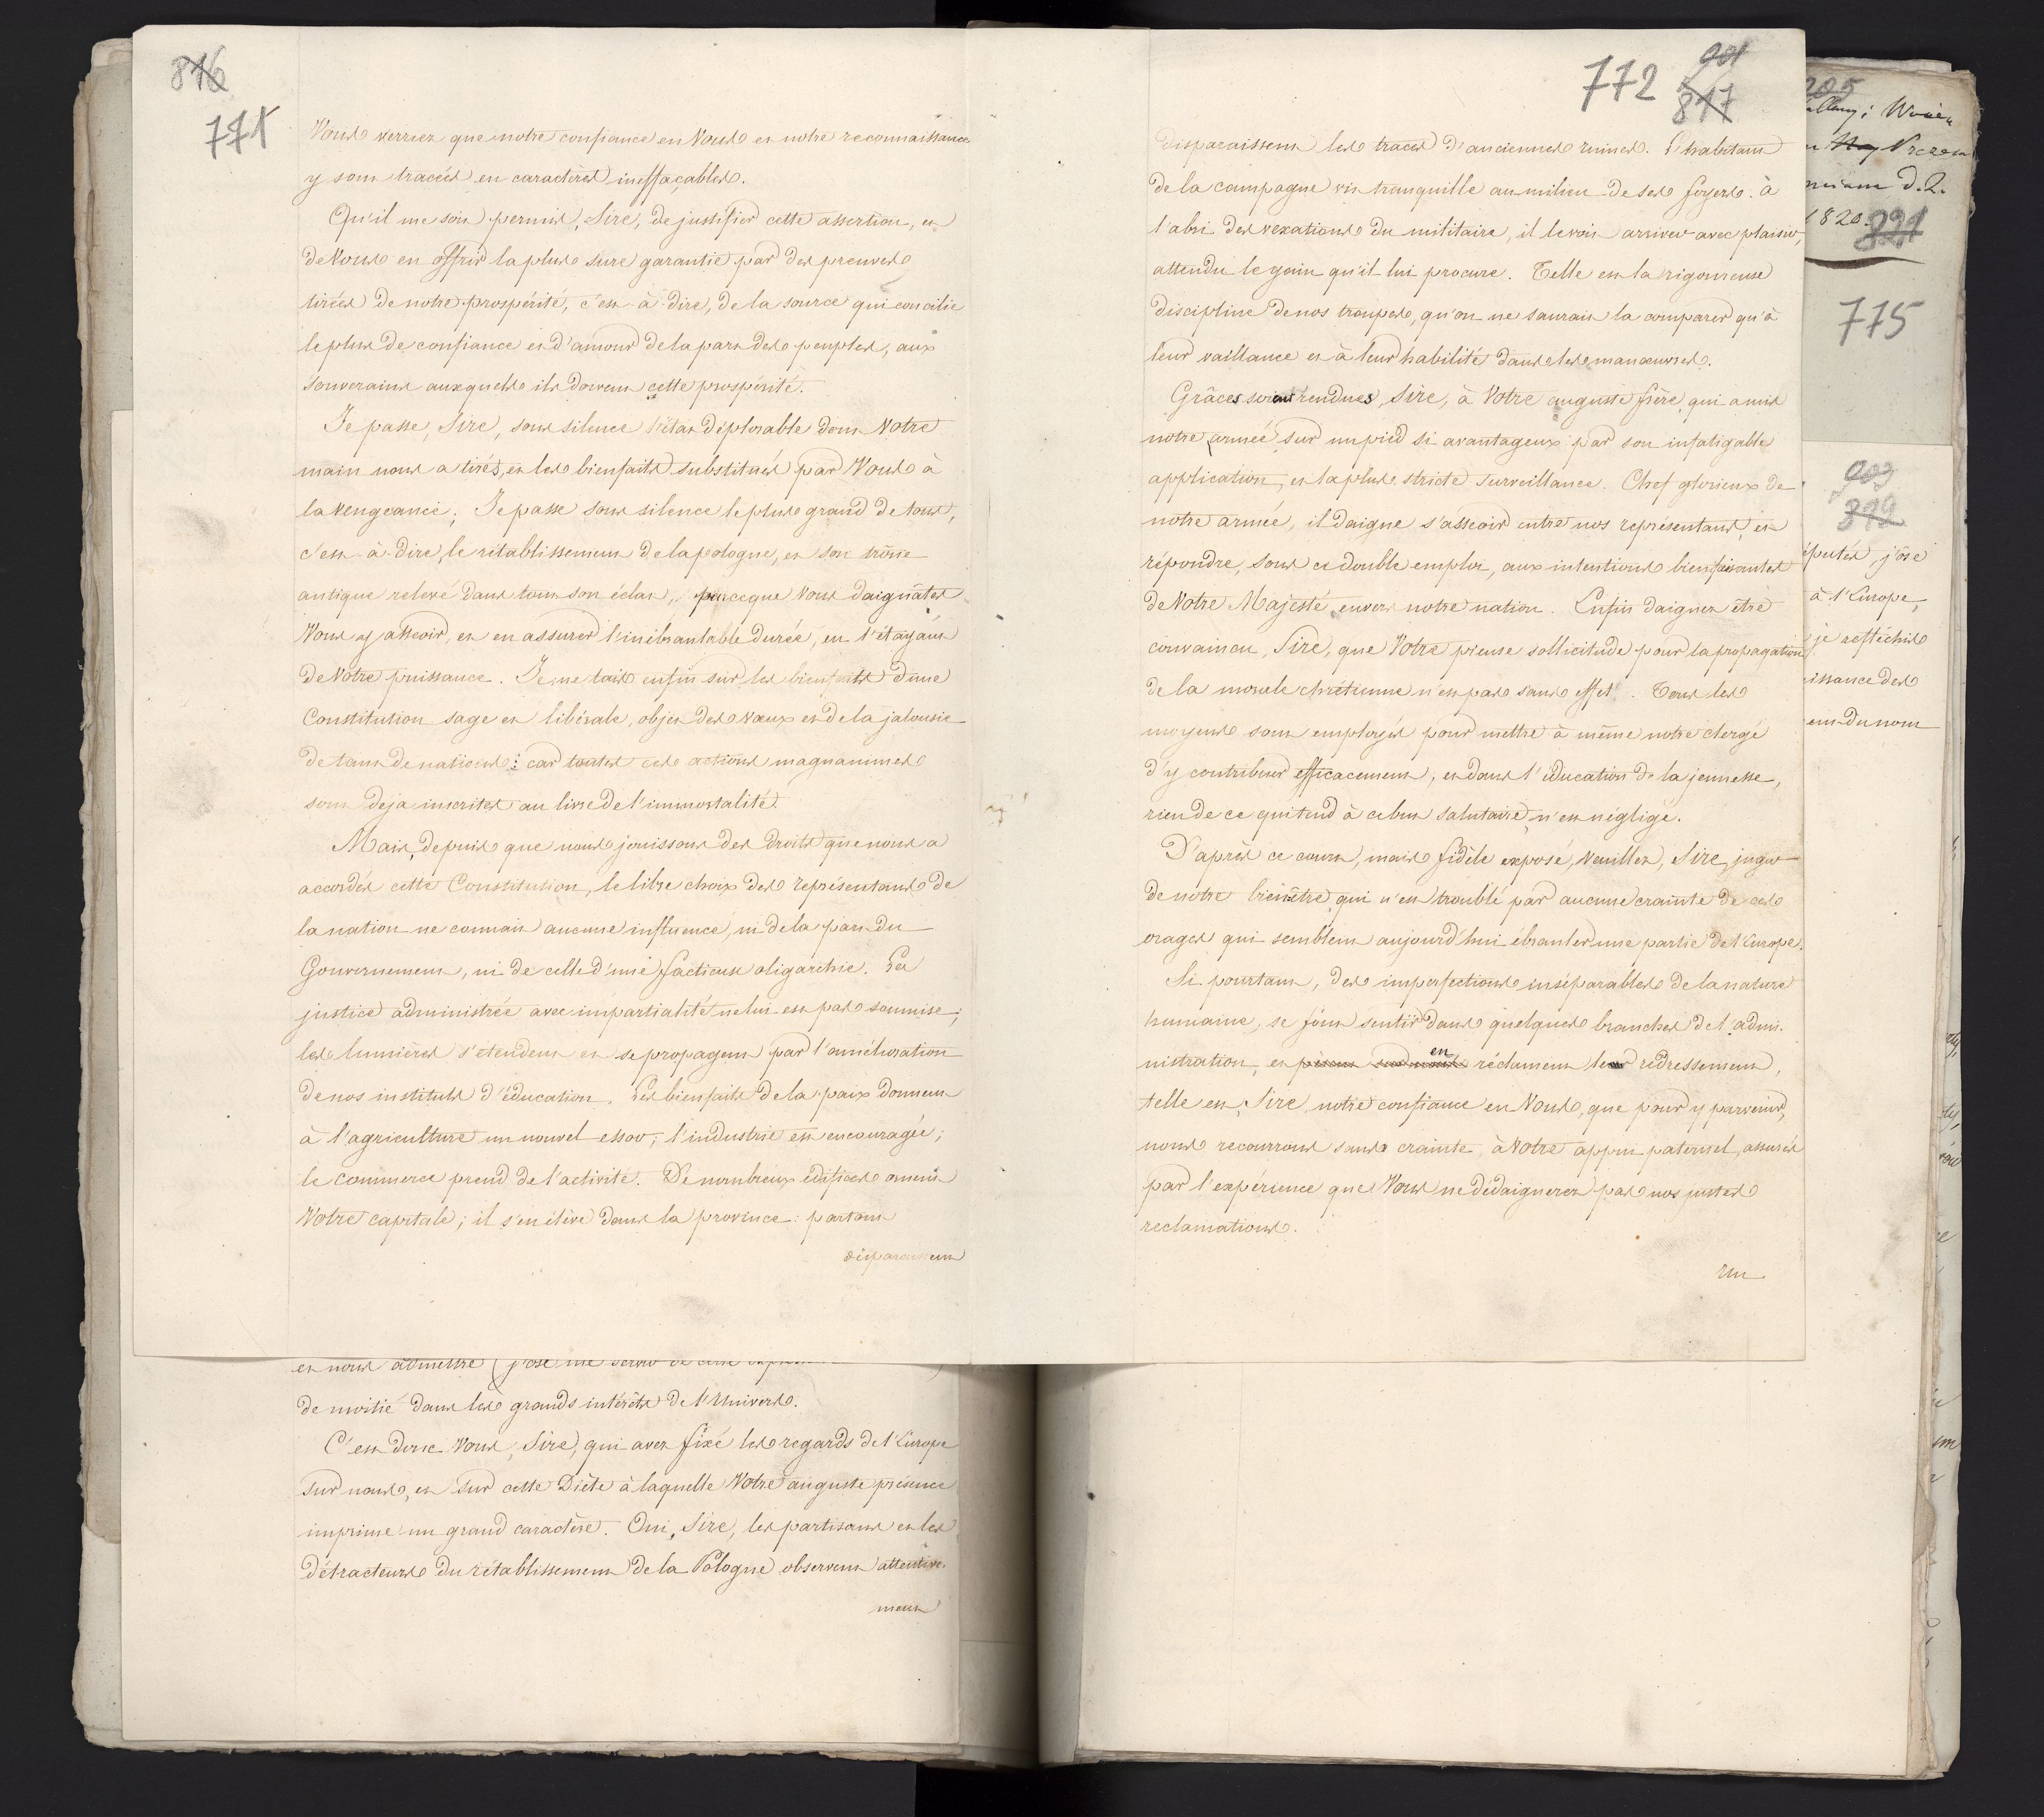 816
771
Vous verriez que notre confiance en Vous et notre reconnaissance
y sont tracées en caractères ineffaçables.
Qu'il me soit permis, Sire, de justifier cette assertion, et
de Vous en offrir la plus sure garantie par des preuves
tirées de notre prospérité, c'est-à-dire, de la source qui concilie
le plus de confiance et d'amour de la part des peuples, aux
souverains auxquels ils doivent cette prospérité.
Je passe, Sire, sous silence l'état déplorable dont Votre
main nous a tirés, et les bienfaits substitués par Vous à
la vengeance; Je passe sous silence le plus grand de tous,
c'est-à-dire, le rétablissement de la pologne, et son trône
antique relevé dans tout son éclat, parceque Vous daignâtes
Vous y asseoir, et en assurer l'inébranlable durée, en l'étayant
de Votre puissance. Je me tais enfin sur les bienfaits d'une
Constitution sage et libérale, objet des vœux et de la jalousie
de tant de nations: car toutes ces actions magnanimes
sont deja inscrites au livre de l'immortalité.
Mais, depuis que nous jouissons des droits que nous a
accordés cette Constitution, le libre choix des représentans de
la nation ne connait aucune influence, ni de la part du
Gouvernement, ni de celle d'une factieuse oligarchie. La
justice administrée avec impartialité ne lui est pas soumise;
les lumières s'etendent et se propagent par l'amélioration
de nos instituts d'éducation. Les bienfaits de la paix donnent
à l'agriculture un nouvel essor; l'industrie est encouragée;
le commerce prend de l'activité. De nombreux édifices ornent
Votre capitale; il s'en élève dans la province: partout
disparaissent
en nous admettre (j'ose me servir de cette
de moitié dans les grands intérêts de l'Univers.
C'est donc Vous, Sire, qui avez fixé les regards de l'Europe
sur nous, et sur cette Diète à laquelle Votre auguste présence
imprime un grand caractère. Oui, Sire, les partisans et les
détracteurs du rétablissement de la Pologne observent attentive-
ment
772
901
817
disparaissent les traces d'anciennes ruines. L'habitant
de la campagne vit tranquille au milieu de ses foyers. à
l'abri des vexations du militaire, il le voit arriver avec plaisir,
attendu le gain qu'il lui procure. Telle est la rigoureuse
discipline de nos troupes, qu'on ne saurait la comparer qu'à
leur vaillance et à leur habilité dans les manœuvres.
Grâces soient rendues, Sire, à Votre auguste frère, qui a mis
notre armée sur un pied si avantageux par son infatigable
application, et la plus stricte surveillance. Chef glorieux de
notre armée, il daigne s'asseoir entre nos représentans, et
répondre, sous ce double emploi, aux intentions bienfaisantes
de Votre Majesté envers notre nation. Enfin daignez être
convaincu, Sire, que Votre pieuse sollicitude pour la propagation
de la morale chrétienne n'est pas sans effet. Tous les
moyens sont employés pour mettre à même notre clergé
d'y contribuer efficacement, et dans l'éducation de la jeunesse,
rien de ce qui tend à ce but salutaire, n'est négligé.
D'après ce court, mais fidèle exposé, veuillez, Sire, juger
de notre bienêtre qui n'est troublé par aucune crainte de ces
orages qui semblent aujourd'hui ébranler une partie de l'Europe.
Si pourtant, des imperfections inséparables de la nature
humaine, se font sentir dans quelques branches de l'admi-
nistration, et en réclament leur redressement,
telle est, Sire, notre confiance en Vous, que pour y parvenir,
nous recourrons sans crainte à Votre appui paternel, assurés
par l'expérience que Vous ne dédaignerez pas nos justes
reclamations.
205
1820.
821
775
903
819
éputés, j'ose
à l'Europe,
je reflechis
issance des
du nom